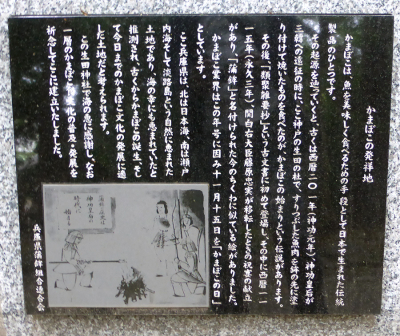 かまぼこの発祥地
かまぼこは、魚を美味しく食べるための手段として日本で生まれた伝統
製品のひとつです。
その起源を辿っていくと、古くは西暦二〇一年（神功元年）神功皇后が
三韓への遠征の時に、ここ神戸の生田の杜で、すりつぶした魚肉を鉾の先に塗
り付けて焼いたものを食べたのが、かまぼこの始まりという伝説があります。
その後、「類聚雑要抄」という古文書に初めて登場し、その中に西暦一一
一五年（永久三年）関白右大臣藤原忠実が移転したときの祝宴の献立
があり、「蒲鉾」と名付けられた今のちくわに似ている絵がありました。
かまぼこ業界はこの年号に因み十一月十五日を「かまぼこの日」
としています。
ここ兵庫県は、北は日本海、南は瀬戸
内そして淡路島という自然に恵まれた
土地であり、海の幸にも恵まれていたと
推測され、古くからかまぼこの誕生、そし
て今日までのかまぼこ文化の発展に適
した土地だと考えられます。
この生田神社で海の恵に感謝し、なお
一層のかまぼこ文化の普及・発展を
祈念してここに建立いたしました。
兵庫県蒲鉾組合連合会
蒲鉾の起源は
神功皇后の
時代に
始まる